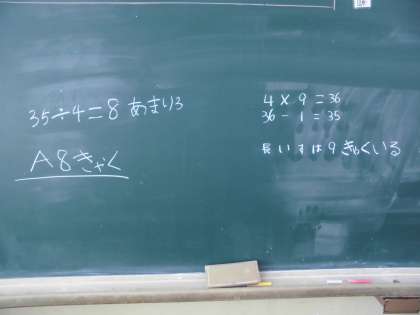 35÷4=8 あまり3
A8きゃく
4×9=36
36-1=35
長いすは9きゃくいる